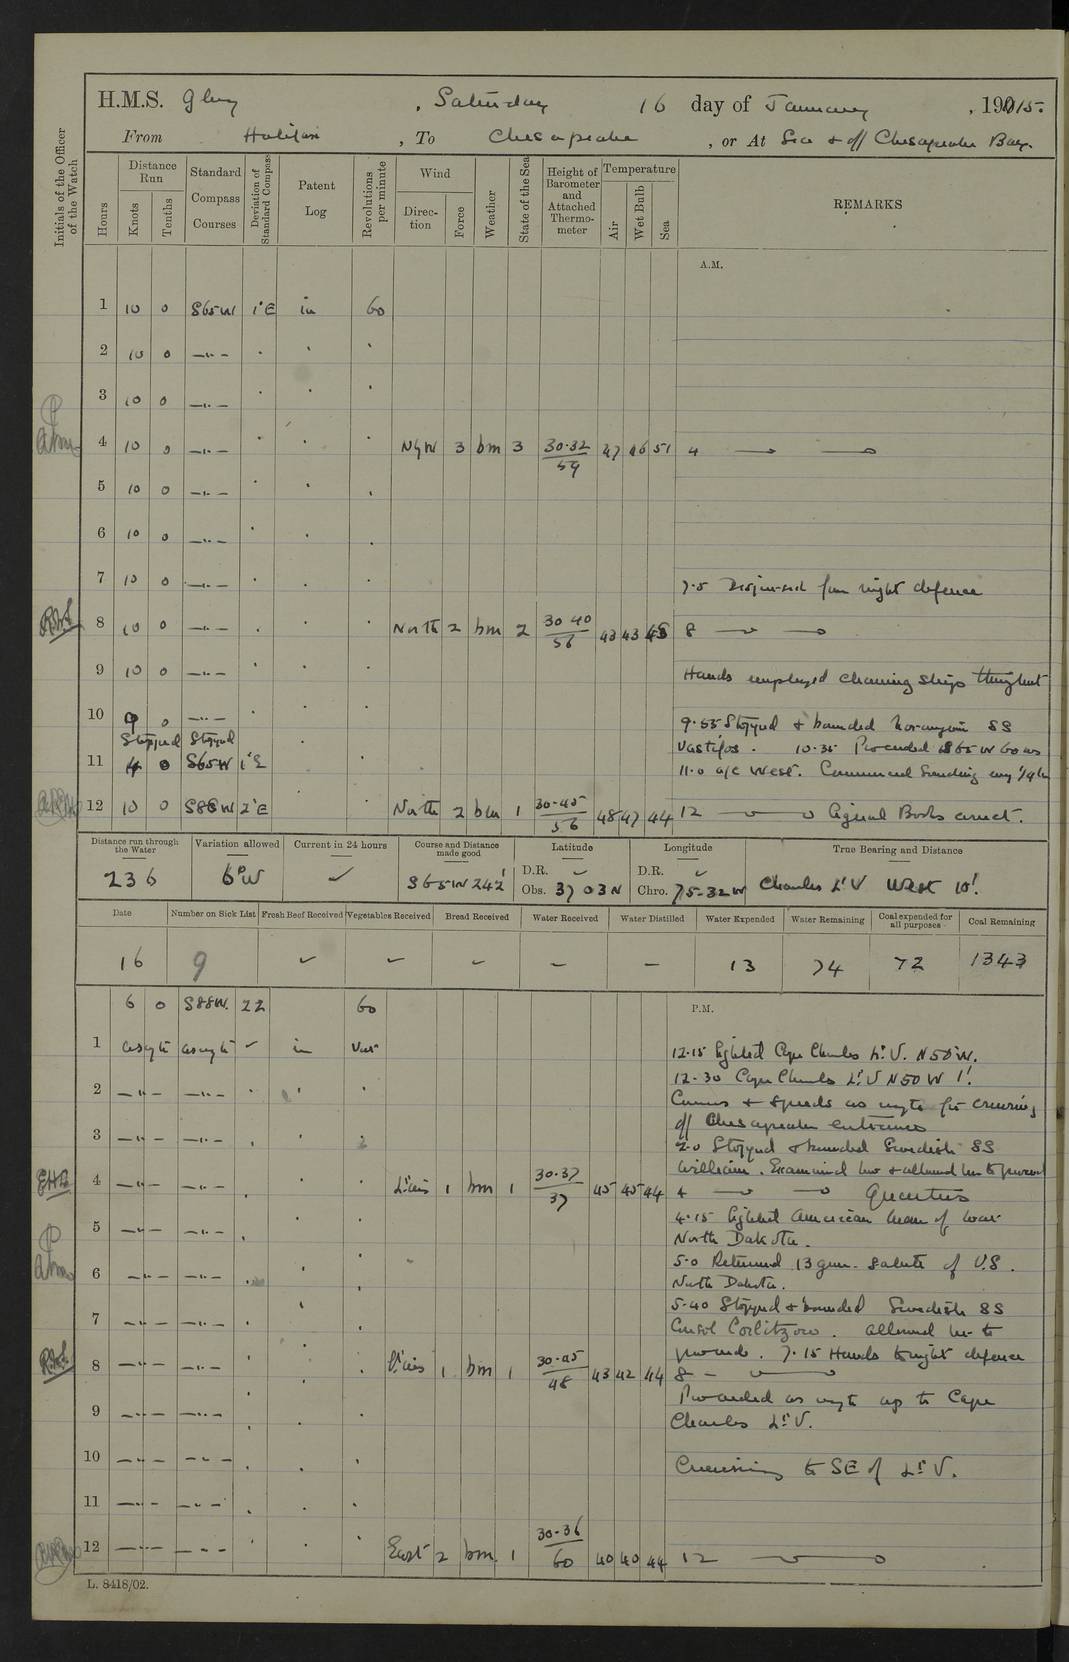 H.M.S. Glory, Saturday 16 day of January, 1915.
From Halifax, To Chesapeake, or At Sea & off Chesapeake Bay.
Initials of the Officer of the Watch
Hours
Distance Run
Knots
Tenths
Standard Compass Courses
Deviation of Standard Compass
Patent Log
Revolutions per minute
Wind
Direction
Force
Weather
State of the Sea
Height of Barometer and Attached Thermometer
Temperature
Air
Wet Bulb
Sea
REMARKS
A.M.
1 10 0 S65W 1°E in 60
2 10 0 —"—
3 10 0 —"—
4 10 0 —"— NyW 3 bm 3 30.32 59 47 46 51 4
5 10 0 —"—
6 10 0 —"—
7 10 0 —"— 7.5 Dispersed from night defence
8 10 0 —"— North 2 bm 2 30 40 56 43 43 45 8
9 10 0 —"— Hands employed cleaning ship throughout
10 9 0 —"— 9.55 Stopped & boarded Norwegian SS
Stopped Stopped Vastifos. 10.35 Proceeded S65W 60 revs
11 4 0 S65W 1°E 11.0 a/c West. Commenced Sounding every 1/4 hr
12 10 0 S88W 2°E North 2 bm 1 30.45 56 48 47 44 12 Signal Books correct.
Distance run through the Water
236
Variation allowed
6°W
Current in 24 hours
Course and Distance made good
S65W 242'
Latitude
D.R.
Obs. 37 03 N
Longitude
D.R.
Chro. 75-32 W
True Bearing and Distance
Charles Lt V West 10'.
Date Number on Sick List Fresh Beef Received Vegetables Received Bread Received Water Received Water Distilled Water Expended Water Remaining Coal expended for all purposes Coal Remaining
16 9 13 74 72 1343
P.M.
6 0 S88W. 22 60
1 as reqte as reqte in Var 12.15 Sighted Cape Charles Lt. V. N50°W.
12.30 Cape Charles Lt V N50W 1'.
2 —"— —"— Courses & Speeds as reqte for cruising
off Chesapeake entrance
3 —"— —"— 2.0 Stopped & boarded Swedish SS
William. Examined her & allowed her to proceed
4 —"— —"— Lt airs 1 bm 1 30.37 37 45 45 44 4 Quarters
4.15 Sighted American man of war
5 —"— —"— North Dakota.
5.0 Returned 13 gun salute of U.S.
6 —"— —"— North Dakota.
5.40 Stopped & boarded Swedish SS
7 —"— —"— allowed her to
proceed. 7.15 Hands to night defence
8 —"— —"— Lt airs 1 bm 1 30.45 48 43 42 44 8
Proceeded as reqte up to Cape
9 —"— —"— Charles Lt V.
10 —"— —"— Cruising to SE of Lt V.
11 —"— —"—
12 —"— —"— East 2 bm 1 30-36 60 40 40 44 12
L. 8418/02.